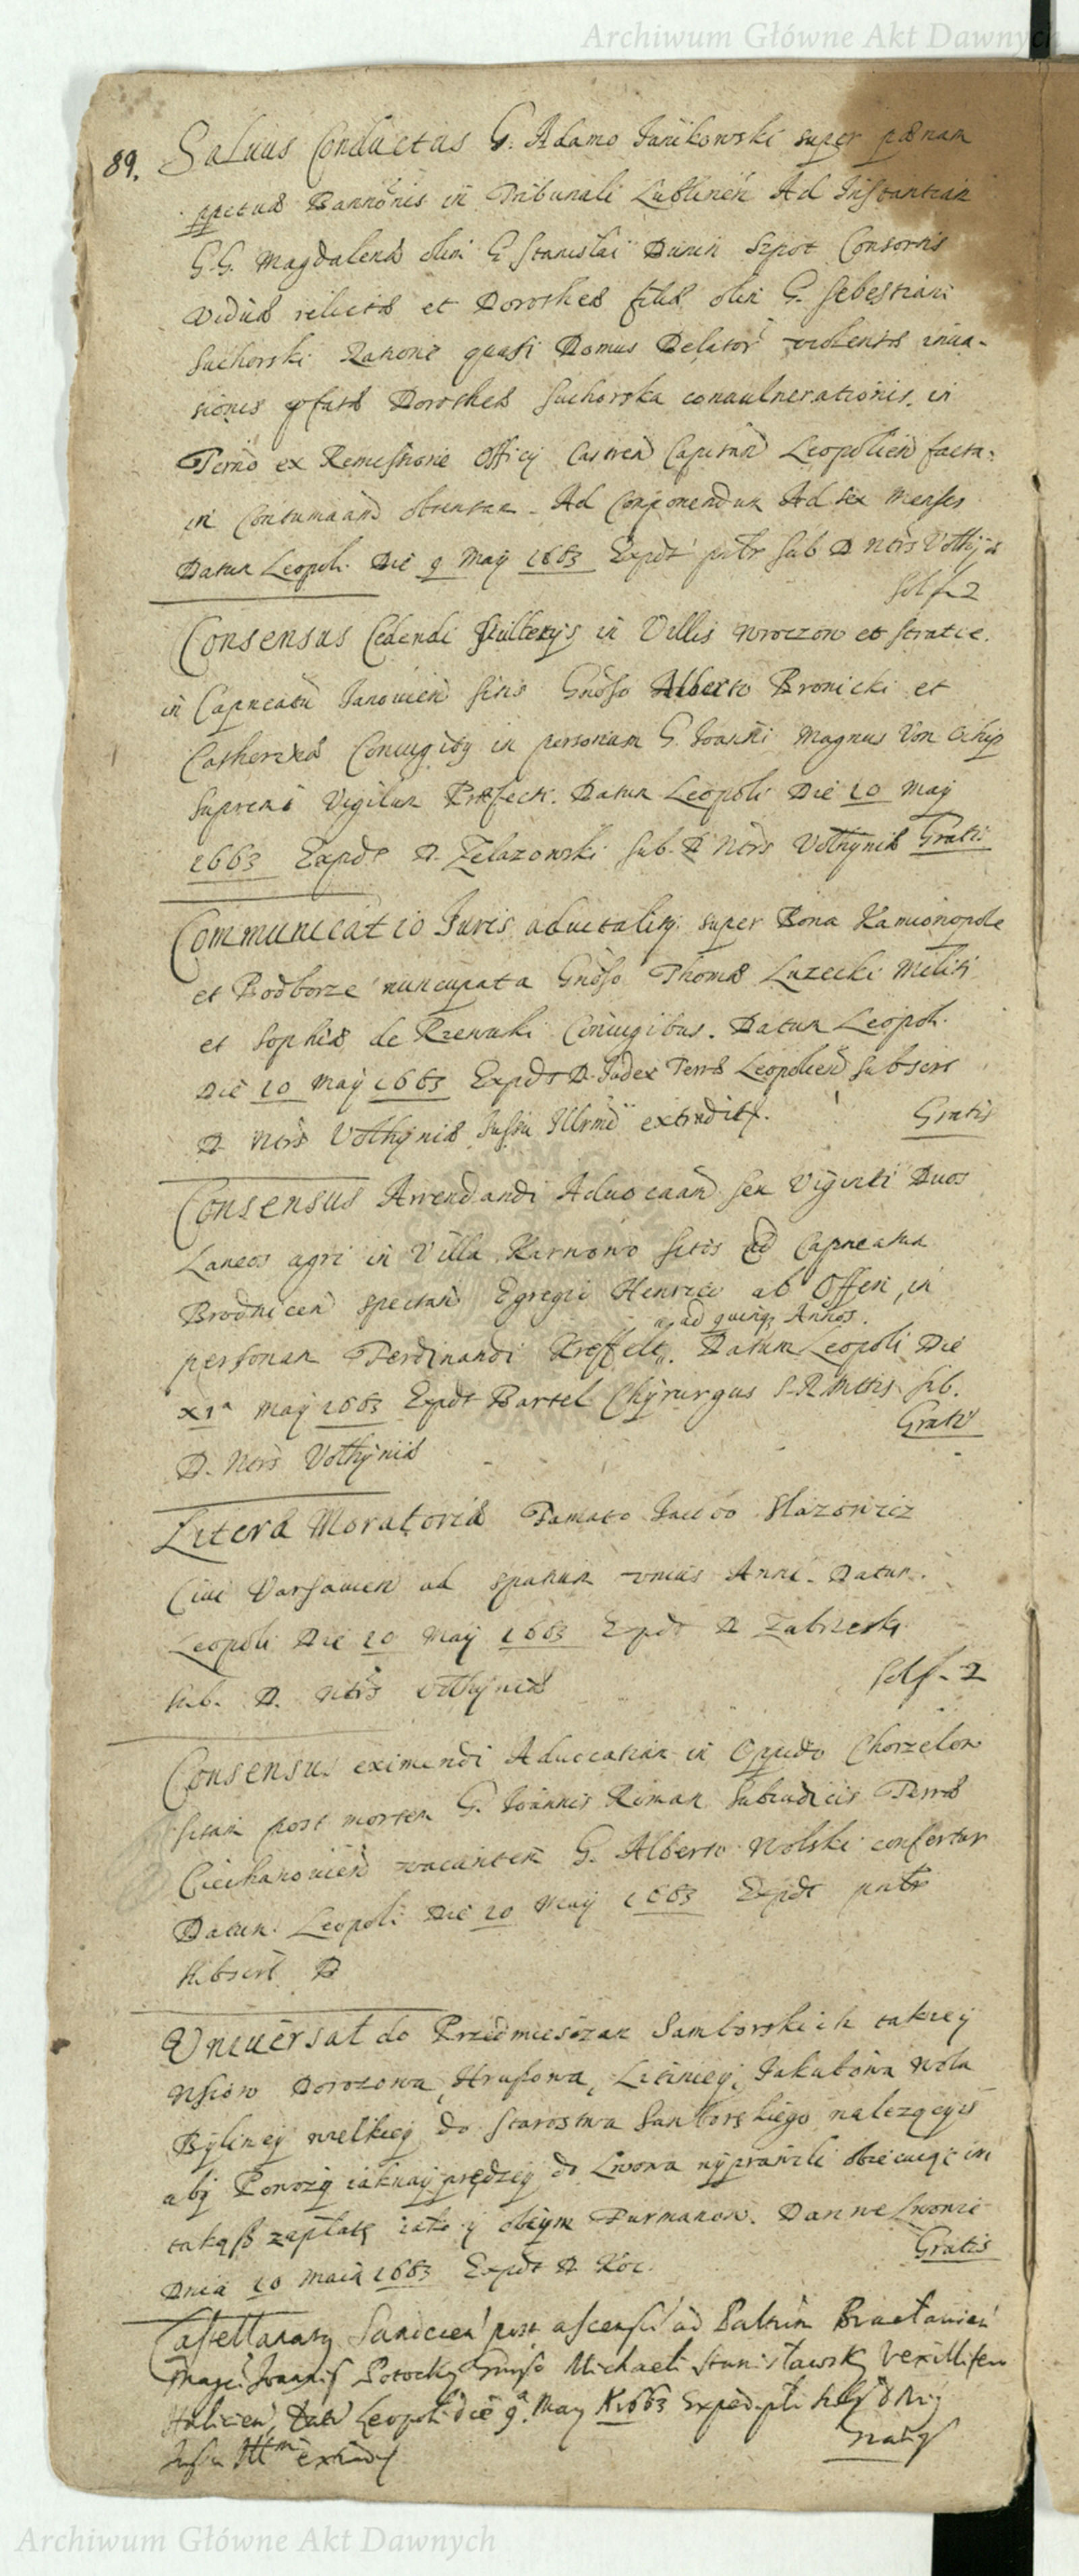 Archiwum Główne Akt Dawnych
89. Salvus Conductus G. Adamo Janikowski super pænam
ppetuæ Bannonis in Tribunali Lublinen Ad Instantiam
G.G. Magdalenæ olim G Stanislai Dunin Szpot Consortis
viduæ relictæ et Dorotheæ filiæ olim G. Sebestiani
Suchorski Ratione quasi Domus Delator violentæ inva-
sionis pfatæ Dorotheæ Suchorska convulnerationis, in
Termo ex Remissione Officij Castren Capitan Leopolien facta
in Contumaciam obtentam. Ad Componendum Ad sex Menses
Datum Leopoli. Die 9 Maij 1663 Expdt pntr sub D Ntrs Volhyniæ
Solf 2
Consensus Cedendi Scultetijs in Villis Wroczow et Stradcz.
in Capneatu Janovien sitis Gnoso Alberto Bronicki et
Catherinæ Coniugibq in personam G. Joanni Magnus Von
Supremi Vigiliar Præfecti. Datum Leopoli Die 10 Maij
1663 Expdt D. Zelazowski sub. D Ntrs Volhyniæ Gratis
Communicatio Juris advitalitij super Bona Kamionopole
et Podborze nuncupata Gnoso Thomæ Luzecki Militi
et Sophiæ de Rzewuski Coniugibus. Datum Leopoli.
Die 10 Maij 1663 Expdt D. Judex Terræ Leopolien subscrt
D. Ntrs Volhyniæ Jussu Illrmi extraditq. Gratis
Consensus Arrendandi Advocatiam seu Viginti Duos
Laneos agri in Villa Karwowo sitos ad Capneatum
Brodnicen spectan Egregii Henrici ab Offen, in
ad quinq Annos.
personam Ferdinandi Kreffelt. Datum Leopoli Die
XIa Maij 1663 Expdt Bartel Chijrurgus S.R.Mttis sub.
Gratis
D. Ntrs Volhyniæ
Literæ Moratoriæ Famato Jacobo Hazowicz
Civi Varsavien ad spatium unius Anni. Datum.
Leopoli Die 10 Maij 1663 Expdt D Zabrzeski
sub. D. Ntrs Volhyniæ
Solf. 2
Consensus eximendi Advocatiam in Oppido Chorzelow
sitam post mortem G. Joannis Niman Subiudicis Terræ
Ciechanovien vacantem G. Alberto Wolski confertur
Datum. Leopoli Die 10 Maij 1663 Expdt pntr
subscrt D
Uniuersał do Przedmiesczan Samborskich takzey
Wsiow Dorozowa, Hrusowa, Litiniey, Jakubowa Wola
Byliney wielkiey do Starostwa Samborskiego nalezącyis
aby Powozy iaknayprędzey do Lwowa wyprawili obiecuiąc im
takąsz zapłatę iako y obcym Furmanow. Dan we Lwowie
Gratis
Dnia 10 Maia 1663 Expdt D Koc.
Castellanatq Sandecen post ascensū ad Paltum Bracłavien
Magci Joannis Potocky Gnoso Michaeli Stanisławsky Vexillifero
Halicien, Datū Leopoli die 9a May A 1663 Exped
Gratis
Jussu Illmi extradt
Archiwum Główne Akt Dawnych